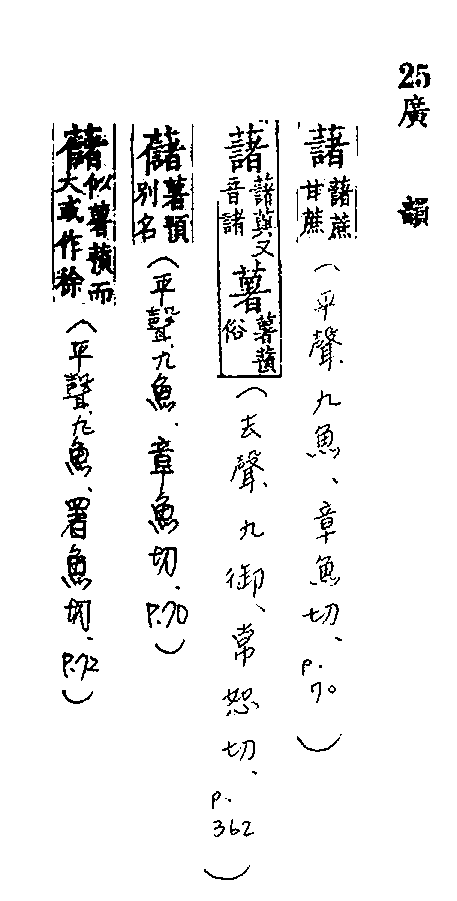 25廣 韻
藷藷蔗甘蔗(平聲、九魚、章魚切、p.70)
藷藷藇又音諸 薯俗薯蕷(去聲、九御、常恕切、p.362)
藷薯蕷別名(平聲、九魚、章魚切、p.70)
藷似薯蕷而大或作䔑(平聲、九魚、署魚切、p.72)